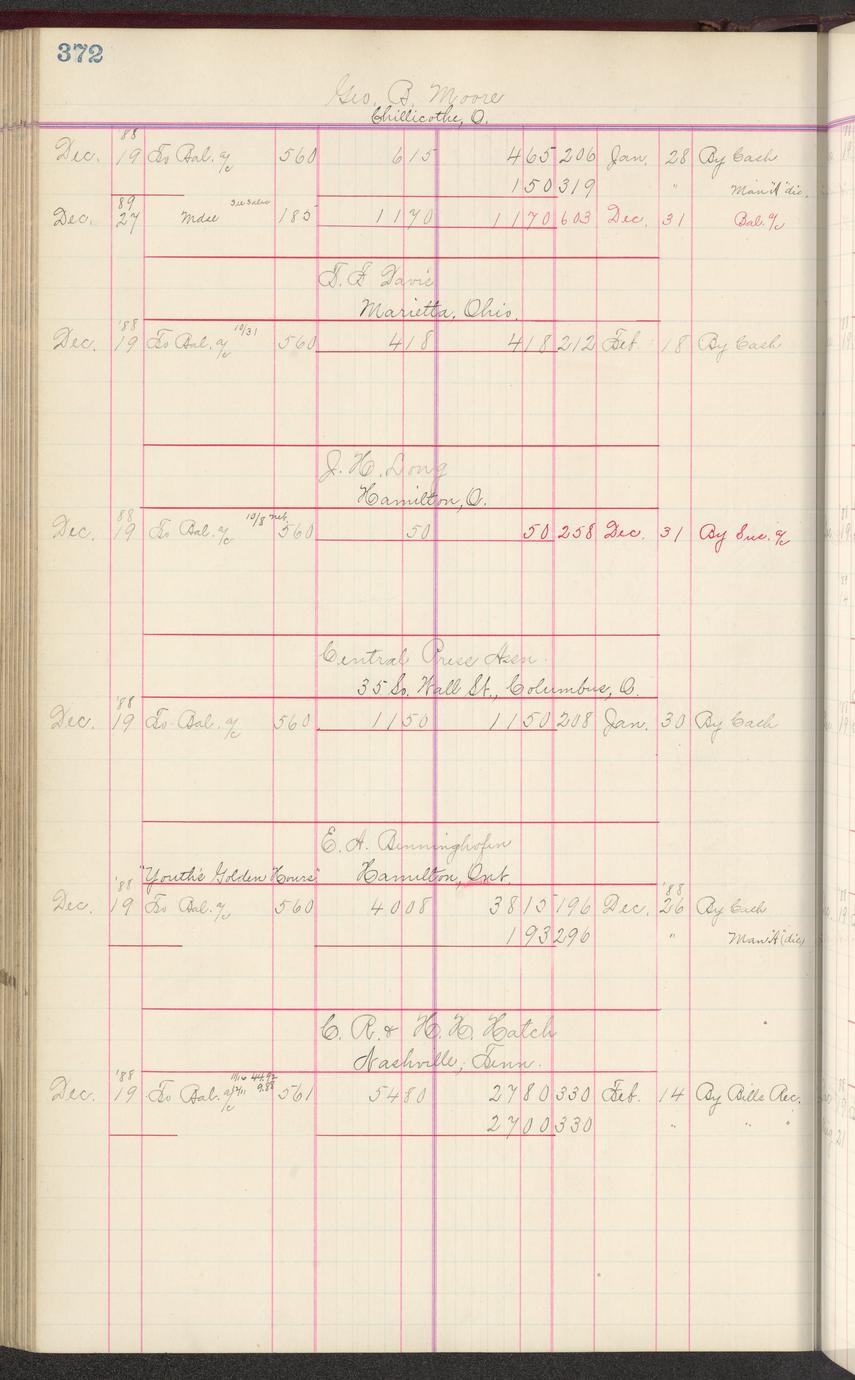 372
Geo. B. Moore
Chillicothe, O.
'88
Dec. 19 To Bal. a/c 560 615 465 206 Jan. 28 By Cash
150 319 " Man'f'dis.
89 See Sales
Dec. 27 Mdse 185 1170 1170 603 Dec. 31 Bal. a/c
T. F. Davis
Marietta, Ohio.
'88 10/31
Dec. 19 To Bal. a/c 560 418 418 212 Feb. 18 By Cash
J. H. Long
Hamilton, O.
88 10/8 net
Dec. 19 To Bal. a/c 560 50 50 258 Dec. 31 By Sus. a/c
Central Press Assn.
35 So. Wall St., Columbus, O.
'88
Dec. 19 To Bal. a/c 560 1150 1150 208 Jan. 30 By Cash
E. A. Benninghofen
"Youth's Golden Hours" Hamilton, Ont.
'88 '88
Dec. 19 To Bal. a/c 560 4008 3815 196 Dec. 26 By Cash
193 296 "
C. R. & H. H. Hatch
Nashville, Tenn.
'88 11/16 44.92
Dec. 19 To Bal. a/c 9.88 561 5480 2780 330 Feb. 14 By Bills Rec.
2700 330 " " "